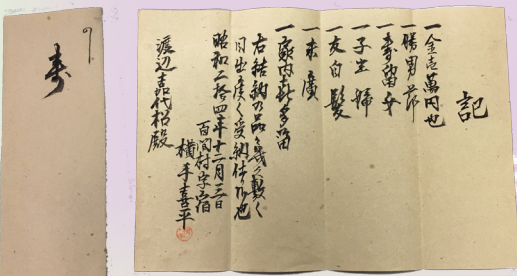 記
一金壱萬円也
一勝男節
一寿留女
一子生婦
一友白髪
一末廣
一家内喜多留
右結納の品々幾久敷く
目出度く受納仕候也
昭和二拾四年十二月三日
百間村字宿
横手喜平
渡辺嘉代松殿
寿